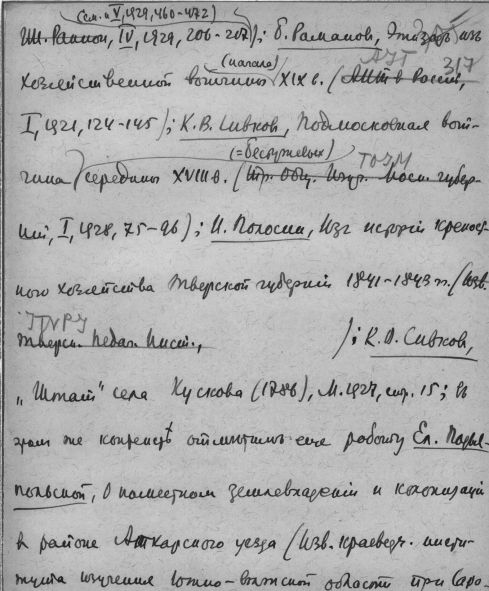 (см. и V, 1929, 460-472)
IV, 1929, 206-207); Б. Романов, Эпизод из
АИТ
317
(начала)
хозяйственной вотчины XIX в. (Архив России,
I, 1921, 124-145); К.В. Сивков, Подмосковная вот-
(=бестужевых)
ТОИМ
чина середины XVIII в. (Тр. Общ. Изуч. Моск. губер-
нии, I, 1928, 75-96); И. Полосин, Изъ исторіи крепост-
ного хозяйства Тверской губерніи 1841-1843 гг. (Изв.
Тверск. Педаг. Инст., ); К.В. Сивков,
„Штат" села Кускова (1786), М. 1927, стр. 15; въ
этом же контекстѣ отметимъ еще работу Ел. Подъя-
польской, О поместном землевладеніи и колонизаціи
в районе Аткарского уезда (Изв. Краеведч. инсти-
тута изучения Южно-волжской области при Сара-